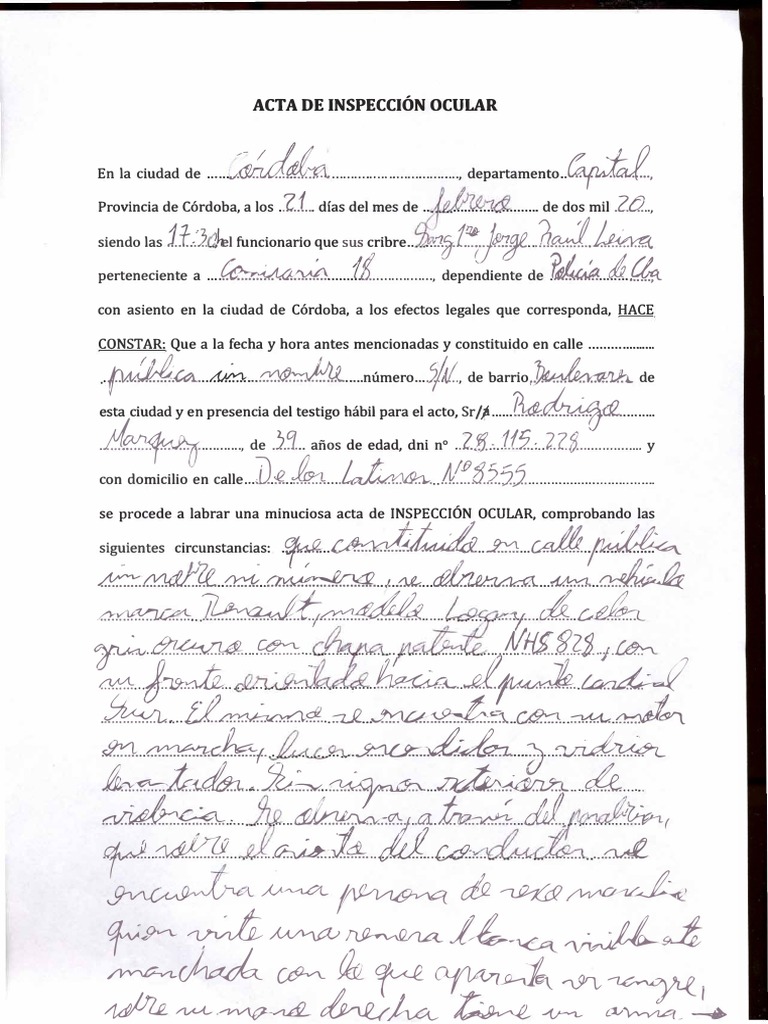 ACTA DE INSPECCIÓN OCULAR
En la ciudad de ......Córdoba................................., departamento..Capital.,
Provincia de Córdoba, a los .21.. días del mes de ..febrero....... de dos mil 20..,
siendo las 17:30hel funcionario que sus cribre Sarg 1ro. Jorge Raúl Leiva
perteneciente a ...Comisaría 18................, dependiente de Policía de Cba
con asiento en la ciudad de Córdoba, a los efectos legales que corresponda, HACE
CONSTAR: Que a la fecha y hora antes mencionadas y constituido en calle ...................
..pública sin nombre.....número..S/N., de barrio, Boulevares de
esta ciudad y en presencia del testigo hábil para el acto, Sr/a......Rodrigo..........
..Marquez..........., de .39.. años de edad, dni n° ..28.115.228.................. y
con domicilio en calle...De los Latinos N°8555................................
se procede a labrar una minuciosa acta de INSPECCIÓN OCULAR, comprobando las
siguientes circunstancias: que constituido en calle pública
sin nobre ni número, se observa un vehículo
marca Renault, modelo Logan, de color
gris oscuro con chapa patente NHS828, con
su frente orientado hacia el punto cardinal
Sur. El mismo se encuentra con su motor
en marcha, luces encendidas y vidrios
levantados. Sin signos exteriores de
violencia. Se observa, a través del parabrisas,
que sobre el asiento del conductor se
encuentra una persona de sexo masculino
quien viste una remera blanca visiblemente
manchada con lo que aparenta ser sangre,
sobre su mano derecha tiene un arma →